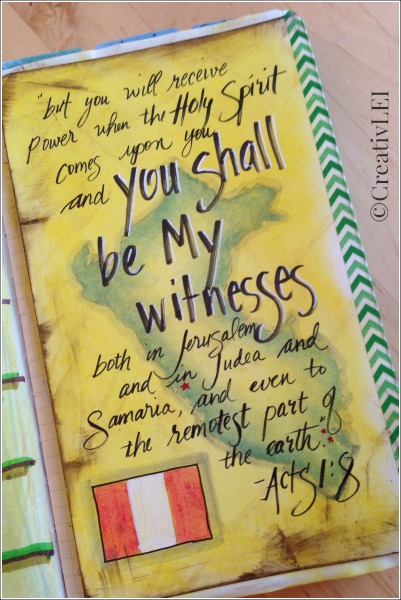 "but you will receive
power when the Holy Spirit
comes upon you,
and you shall
be My
witnesses
both in Jerusalem,
and in Judea and
Samaria, and even to
the remotest part of
the earth."
-Acts 1:8
©CreativLEI